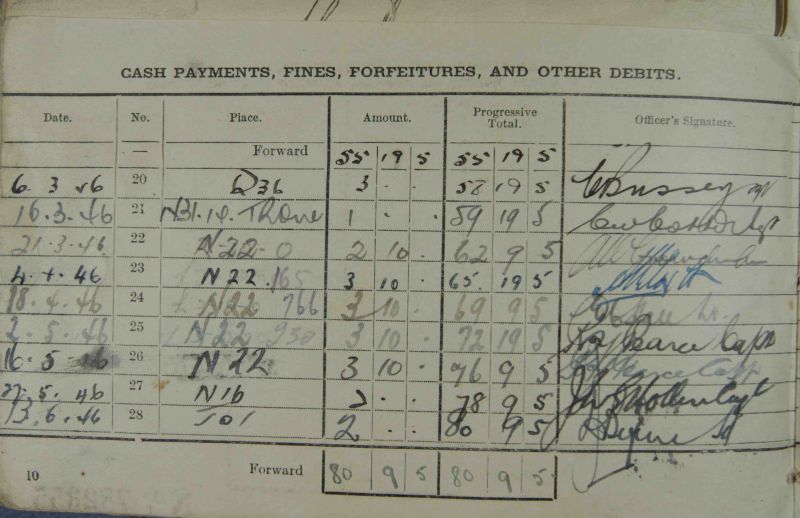 CASH PAYMENTS, FINES, FORFEITURES, AND OTHER DEBITS.
Date. No. Place. Amount. Progressive Total. Officer's Signature.
— Forward 55 19 5 55 19 5
6. 3. 46 20 Q36 3 . . 58 19 5
16.3.46 21 1 . . 59 19 5
21.3.46 22 N-22-0 2 10 . 62 9 5
4.4.46 23 N22.165 3 10 . 65. 19 5
18.4.46 24 N22 766 3 10 . 69 9 5
2.5.46 25 N22 3 10 . 72 19 5 Pearce Capt
16.5.46 26 N22 3 10 . 76 9 5 Pearce Capt
27.5.46 27 N16 2 . 78 9 5
13.6.46 28 2 . 80 9 5
10 Forward 80 9 5 80 9 5